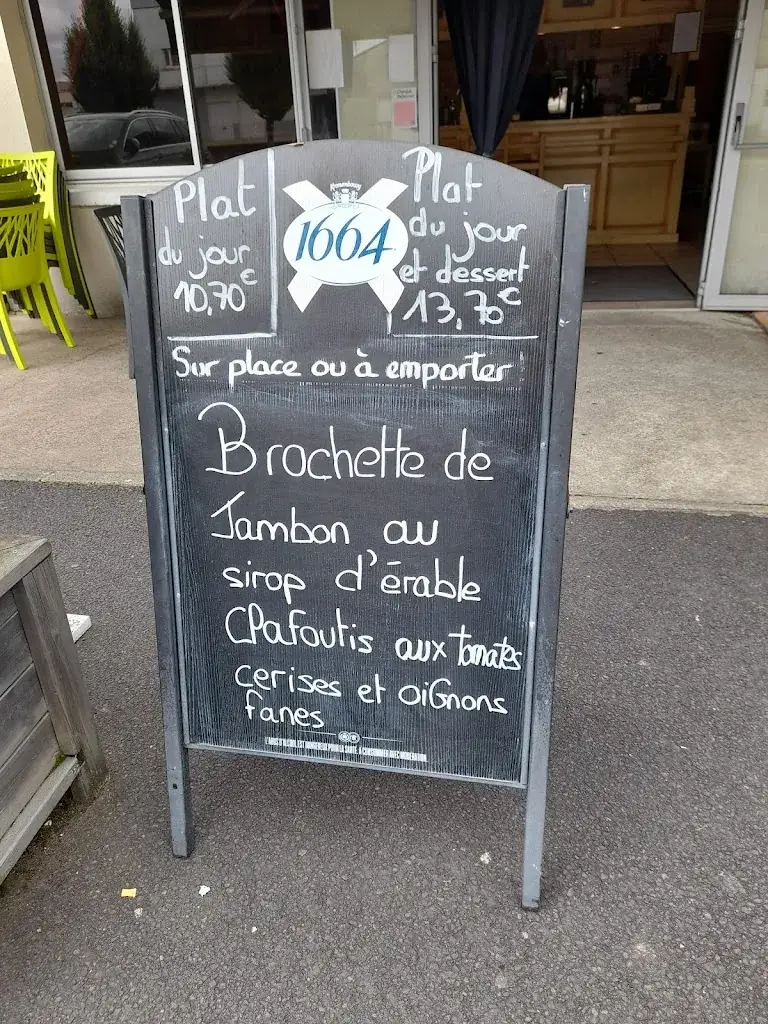 Plat
du jour
10,70€
Kronenbourg
1664
Plat
du jour
et dessert
13,70€
Sur place ou à emporter
Brochette de
Jambon au
sirop d'érable
Clafoutis aux tomates
cerises et oiGnons
fanes